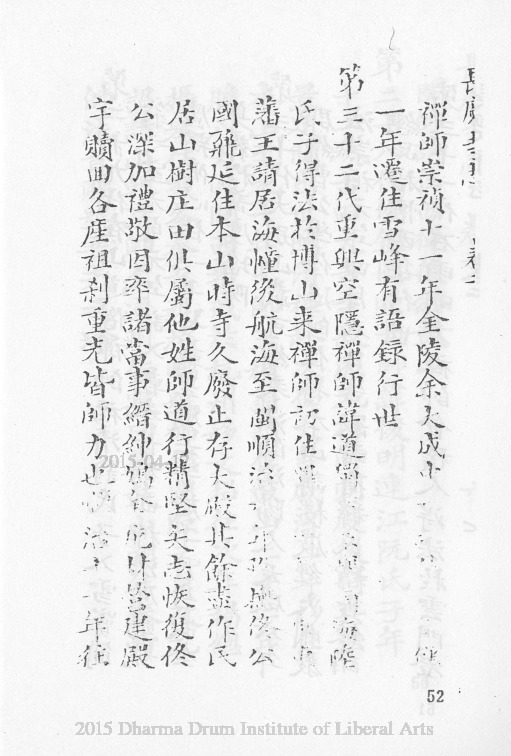 長慶寺志 卷二
禪師崇禎十一年金陵余大成
一年遷住雪峰有語錄行世
第三十二代重興空隱禪師諱道獨 海陸
氏子得法於博山來禪師初住
藩王請居海幢後航海至閩順治 年 佟公
國鼐延住本山時寺久廢止存大殿其餘盡作民
居山樹庄田俱屬他姓師道行精堅矢志恢復佟
公深加禮敬因率諸當事縉紳 營建殿
宇贖回各産祖刹重光皆師力也順治十一年往
52
2015-04-1
2015 Dharma Drum Institute of Liberal Arts